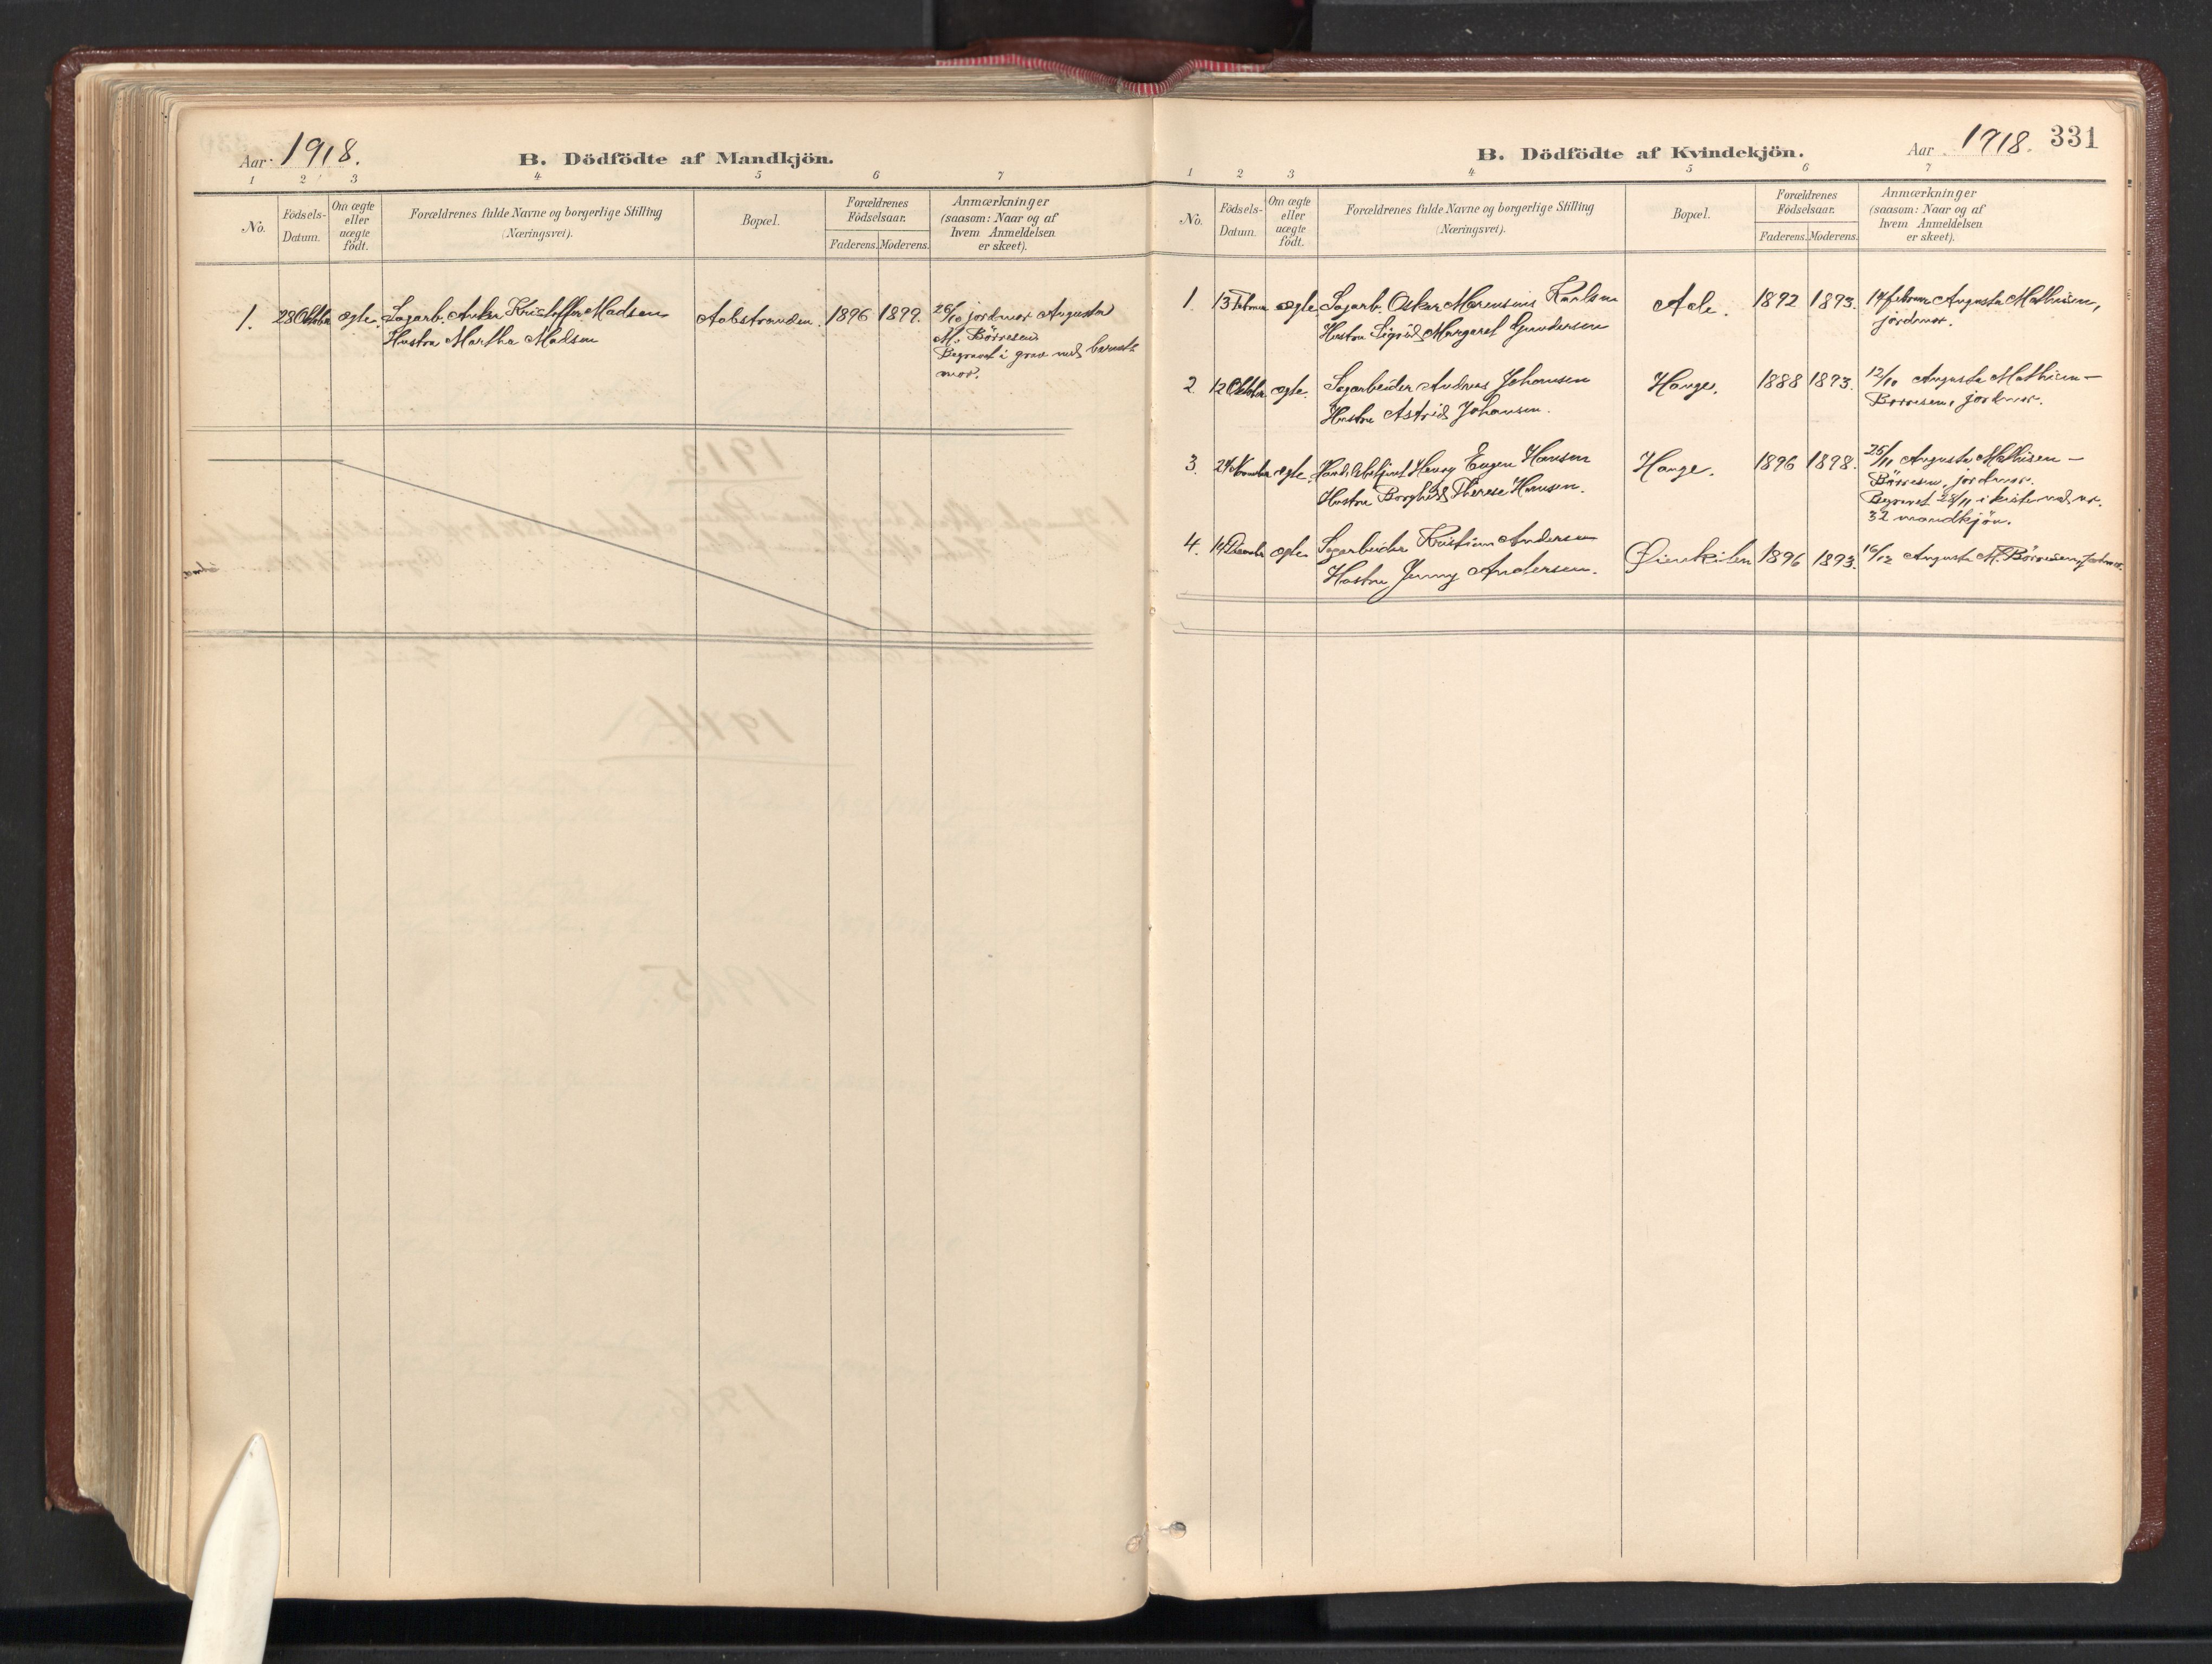 Aar 1918.
B. Dödfödte af Mandkjön.
1 2 3 4 5 6 7
No.
Födsels-Datum.
Om ægte eller uægte født.
Forældrenes fulde Navne og borgerlige Stilling
(Næringsvei).
Bopæl.
Forældrenes Födselsaar.
Faderens. Moderens.
Anmærkninger
(saasom: Naar og af
hvem Anmeldelsen
er skeet).
1. 28 Oktober ægte. Sagarb. Anker Kristoffer Madsen Aabstranden. 1896 1899. 26/10 jordmor Augusta
Hustru Martha Madsen M. Börresen
Begravet i grav med barnets
mor.
B. Dödfödte af Kvindekjön.
Aar 1918. 331
1 2 3 4 5 6 7
No.
Födsels-Datum.
Om ægte eller uægte födt.
Forældrenes fulde Navne og borgerlige Stilling
(Næringsvei).
Bopæl.
Forældrenes Födselsaar.
Faderens. Moderens.
Anmærkninger
(saasom: Naar og af
hvem Anmeldelsen
er skeet).
1. 13 Februar ægte Sagarb. Oskar Marensius Karlsen Aale. 1892 1893. 14 februar Augusta Mathisen,
Hustru Sigrid Margaret Gundersen jordmor.
2. 12 Oktober ægte. Sagarbeider Andreas Johansen Hauge. 1888 1893. 12/10 Augusta Mathisen-
Hustru Astrid Johansen. Borresen, jordmor.
3. 24 November ægte. Henry Eugen Hansen Hauge. 1896 1898. 25/11 Augusta Mathisen-
Hustru Borghild Therese Hansen. Börresen, jordmor.
Begravet 28/11 i kiste med nr.
32 mandkjön.
4. 14 December ægte Sagarbeider Kristian Andersen Øienkilen 1896 1893. 16/12 Augusta M. Börresen, jordmor.
Hustru Jenny Andersen.